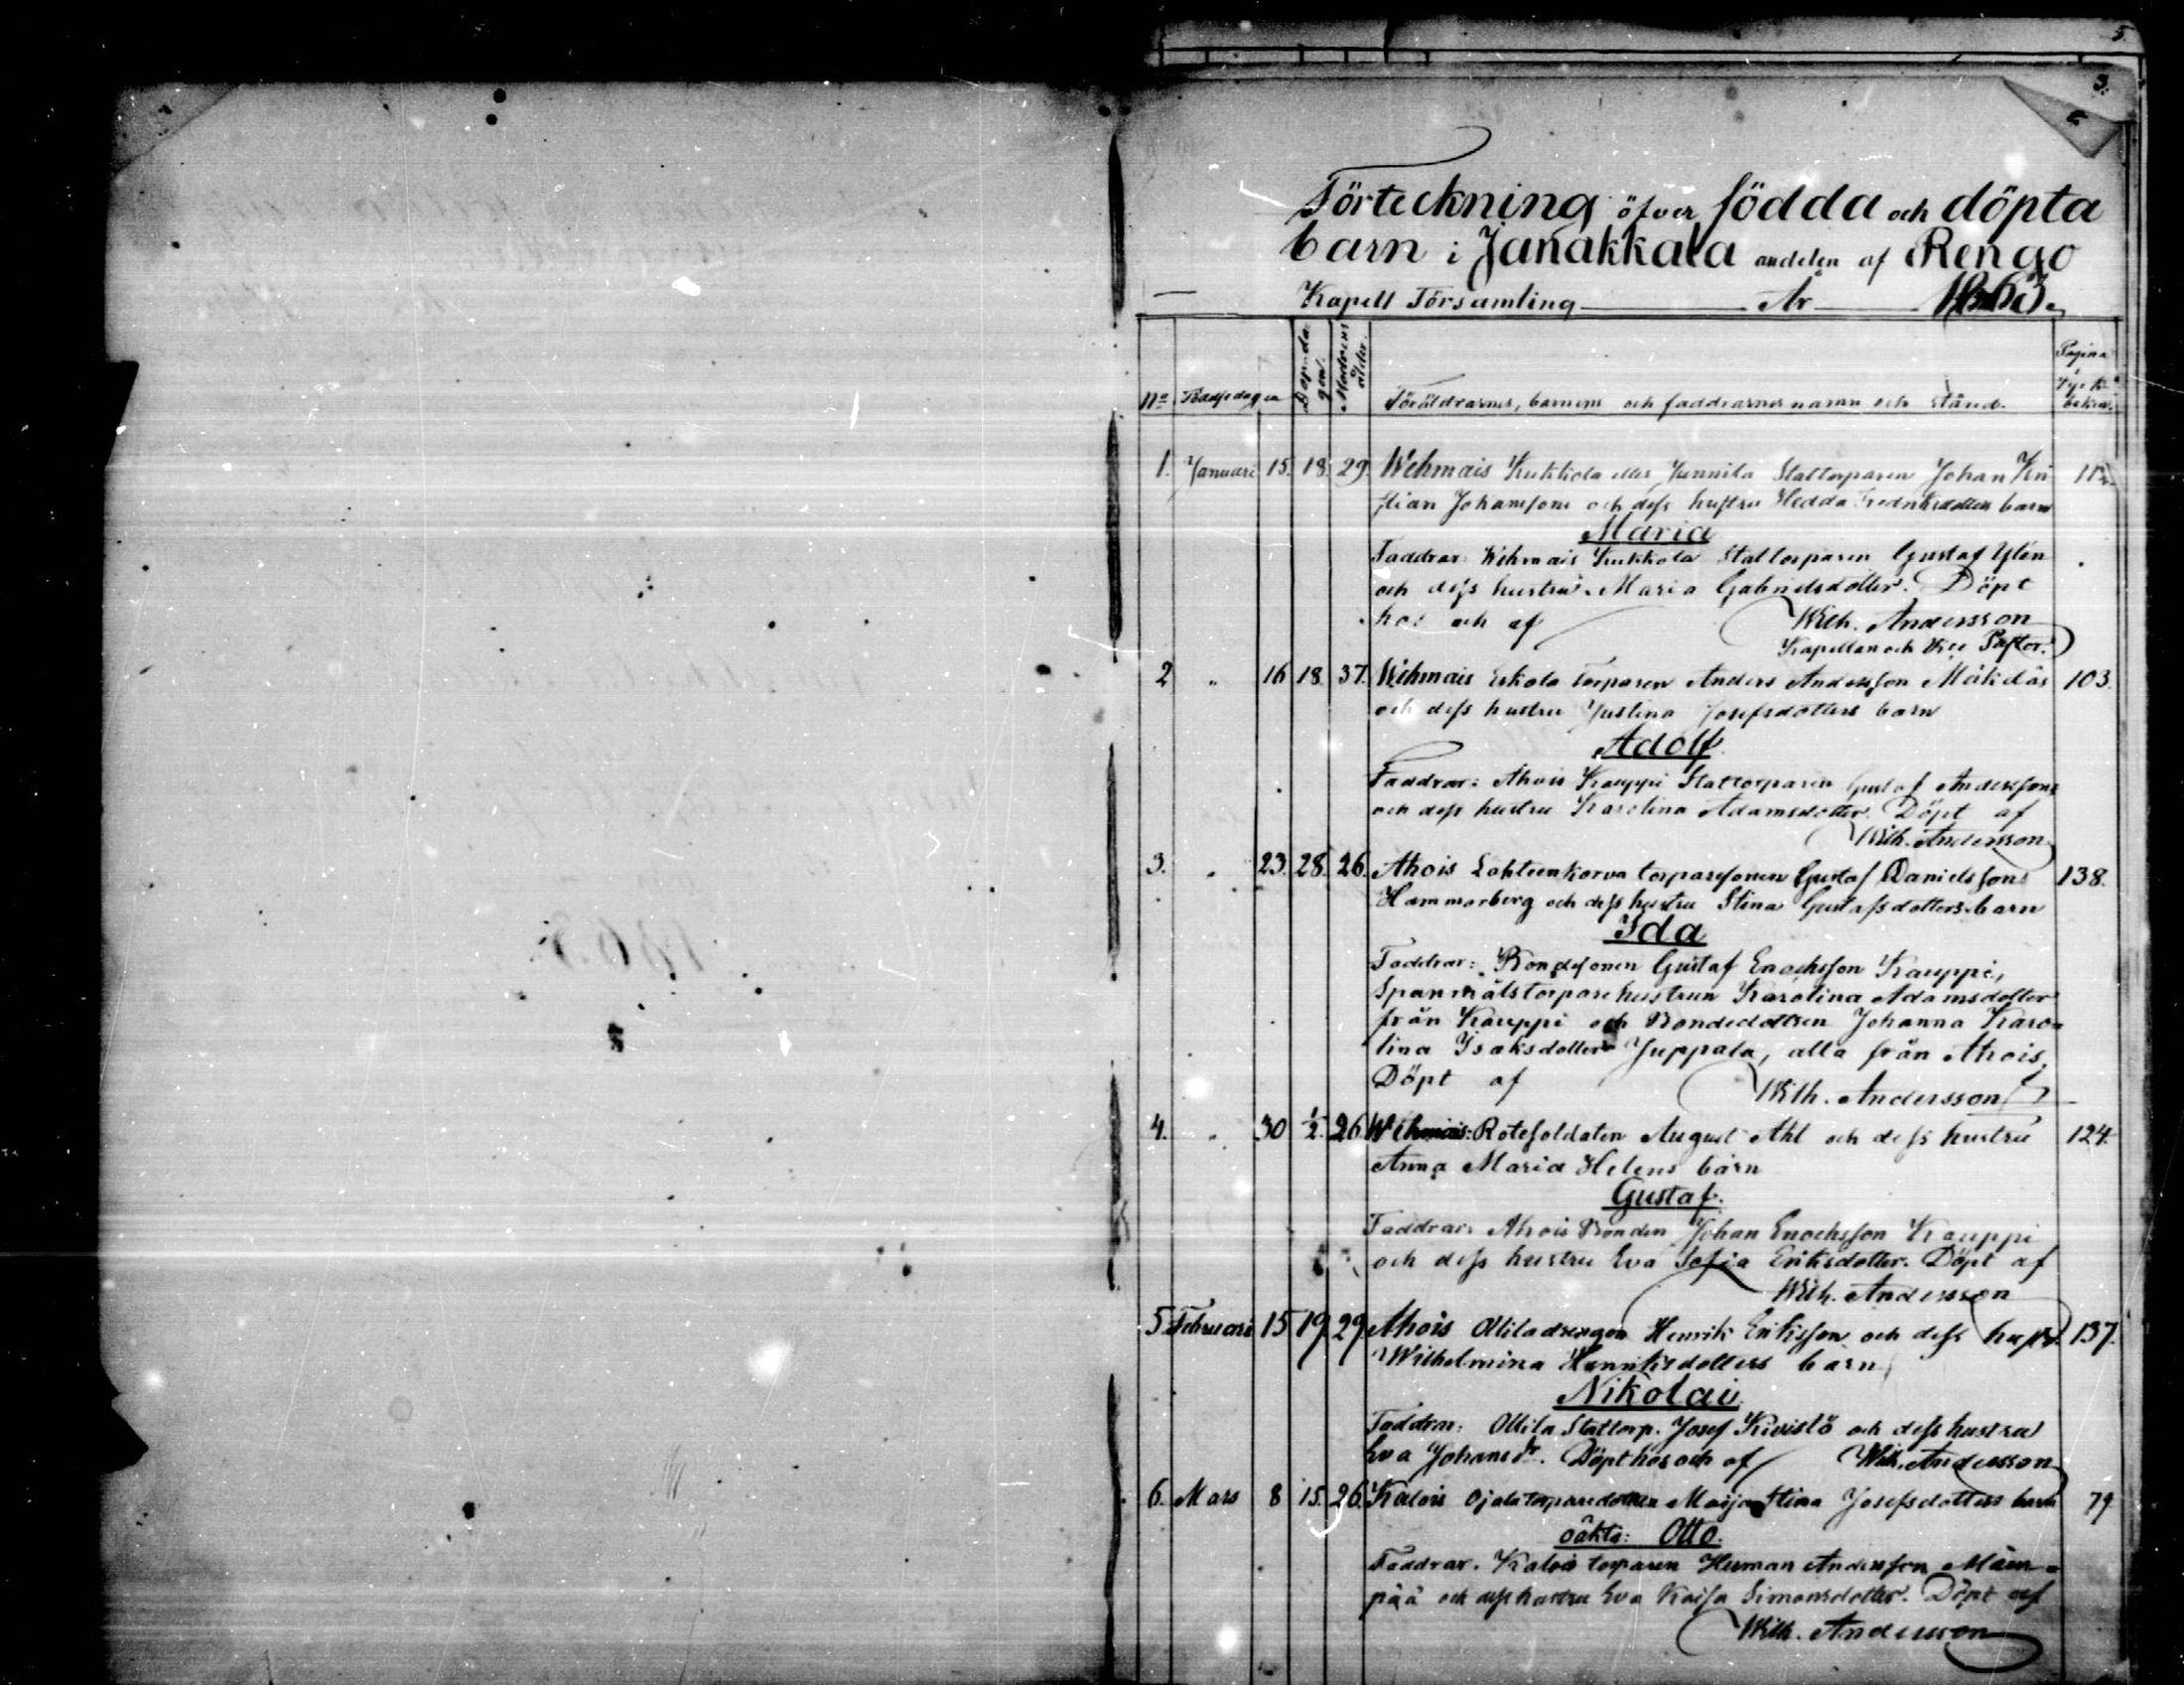 5.
3.
Förteckning öfver födda och döpta
barn i Janakkala andelen af Rengo
Kapell Församling År 1863.
No Födsedagen Döpnadagen. Modrens ålder. Föräldrarnes, barnens och faddrarnes namn och stånd. Pagina
1. Januari 15. 18. 29. Wehmais Kukkola eller Junnila Stattorparen Johan Kri 112.
stian Johansons och dess hustru Hedda Fredriksdotters barn
Maria
Faddrar: Wehmais Kukkola Stattorparen Gustaf Ylén
och dess hustru Maria Gabrielsdotter. Döpt
hos och af Wilh. Andersson
Kapellan och Vice Pastor.
2 " 16 18. 37. Wehmais Eskola torparen Anders Andersson Mäkeläs 103.
och dess hustru Justina Josefsdotters barn
Adolf.
Faddrar: Ahois Kauppi Stattorparen Gustaf Anderssons
och dess hustru Karolina Adamsdotter. Döpt af
Wilh. Andersson
3. " 23. 28. 26. Ahois Lahteenkorva torparesonen Gustaf Danielssons 138.
Hammarberg och dess hustru Stina Gustafsdotters barn
Ida
Faddrar: Bondesonen Gustaf Enochsson Kauppi,
Spanmålstorparehustrun Karolina Adamsdotter
från Kauppi och Bondedottren Johanna Karo=
lina Isaksdotter Juppala, alla från Ahois,
Döpt af Wilh. Andersson
4. " 30 1/2. 26 Wehmais: Rotesoldaten August Ahl och dess hustru 124.
Anna Maria Helens barn
Gustaf.
Faddrar: Ahois Bonden Johan Enochsson Kauppi
och dess hustru Eva Sofia Eriksdotter. Döpt af
Wilh. Andersson
5. Februari 15 19 29 Ahois Ollila drengen Henrik Eriksson och dess hust. 137.
Wilhelmina Henriksdotters barn
Nikolai
Faddrar: Ollila Stattorp. Josef Kivistö och dess hustru
Eva Johansdr. Döpt hos och af Wilh. Andersson
6. Mars 8 15. 26. Kalois Ojala torparedottren Maija Stina Josefsdotters barn 79
oäkta: Otto.
Faddrar. Kalois torparen Herman Andersson Mäen=
pää och dess hustru Eva Kaisa Simonsdotter. Döpt af
Wilh. Andersson